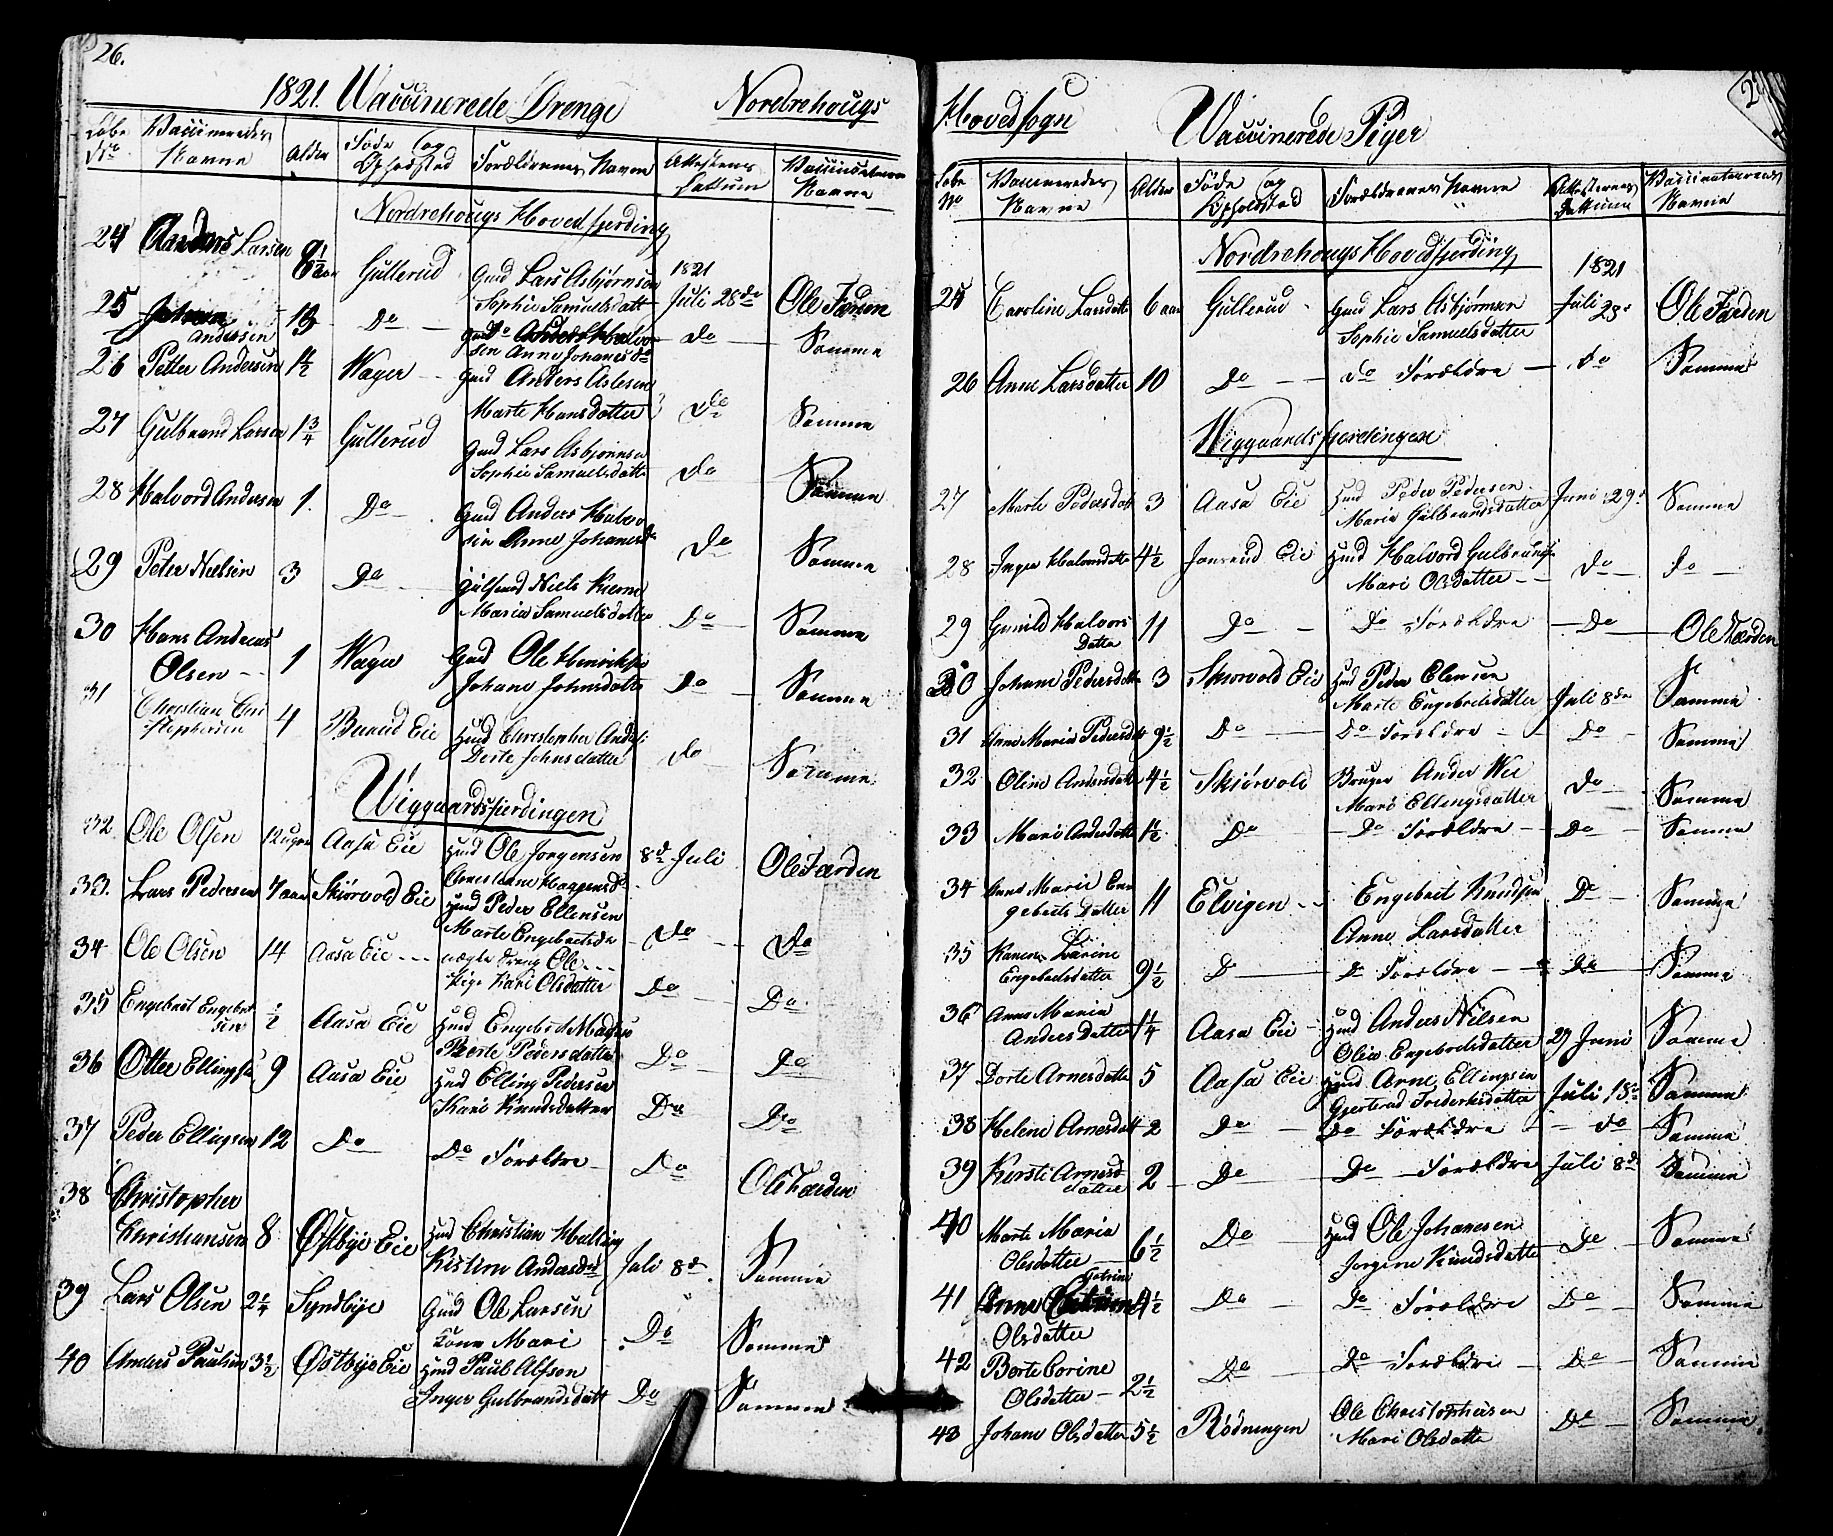 26.
1821. Vaccinerede Drenge Nordrehougs
Løbe No Vaccineredes Navne Alder Føde og Opholdsted Forældrenes Navne Attestens Dattum Vaccinateurens Navne
Nordrehougs Hovedfjerding
24 Anders Larsen 8 1/2 aar Gullerud Gmd Lars Asbjørnsen Sophie Samuelsdatt 1821 Juli 28de Ole Færden
25 Johan Andersen 13 Do Gmd Anders Halvorsen Anne Johanesd Do Samme
26 Petter Andersen 1 1/2 Wager Gmd Anders Aslesen Marte Hansdatter Do Samme
27 Gulbrand Larsen 1 3/4 Gullerud Gmd Lars Asbjørnsen Sophie Samuelsdatte Do Samme
28 Halvord Andersen 1. Do Gmd Anders Halvorsen Anne Johanesd Do Samme
29 Peter Nielsen 3 Do Niels Maria Samuelsdatter Do Samme
30 Hans Andreas Olsen 1 Wager Gmd Ole Henriksen Johane Johnsdatte Do Samme
31 Christian 4 Eie Hmd Christopher Anders Berte Johnsdatter Do Samme
Wiggaardsfjerdingen
32. Ole Olsen 12 uger Aasa Eie Hmd Ole Jorgensen 8de Juli Ole Færden
33. Lars Pedersen 7 aar Skiørvold Eie Hmd Peder Ellensen Marte Engebretsda Do Do
34 Ole Olsen 14 Aasa Eie Ole Pige Kari Olsdatter Do Do
35 Engebret Engebretsen 1/2 Aasa Eie Hmd Engebret Madsen Berte Pedersdatter Do Do
36 Otter Ellingsen 9 Aasa Eie Hmd Elling Pedersen Kari Knudsdatter Do Do
37 Peder Ellingsen 12 Do Do Forældre Do Ole Færden
38 Christopher Christiansen 8 Østbye Eie Hmd Christian Halling Kistine Andersd Juli 8de Samme
39 Lars Olsen 2 1/4 Syndbye Gmd Ole Larsen Kone Mari Do Samme
40 Anders Paulsen 3 1/2 Østbye Eie Hmd Paul Alfson Inger Gulbrandsdatt Do Samme
Hovedsogn Vaccinerede Piger
Løbe No Vaccineredes Navne Alder Føde og Opholdsted Forældrenes Navne Attestens Dattum Vaccinateurens Navne
Nordrehougs Hovedfjerding
25 Caroline Larsdatte 6 aar Gullerud Gmd Lars Asbjørnsen Sophie Samuelsdatter 1821 Juli 28de Ole Færden
26 Anne Larsdatter 10 Do do Forældre do Samme
Wiggaardsfjerdingen
27 Marte Pedersdatt 3 Aasa Eie Hmd Peder Pedersen Marie Gulbrandsdatter Juni 29de Samme
28 Inger Halvorsdatte 4 1/2 Eie Hmd Halvord Gulbrands Mari Olsdatter Do do
29 Gunild Halvors Datter 11 Do Do Forældre Do Ole Færden
30 Johane Pedersdatte 3 Skiorvold Eie Hmd Peder Ellensen Marte Engebretsdatter Juli 8de Samme
31 Anne Maria Pedersdatt 9 1/2 Do Do Forældre Do Samme
32 Oline Andersdatte 4 1/2 Skiørvold Bruger Anders Mari Ellingsdatter Do Samme
33 Mari Andersdatte 1 1/2 Do Do Forældre Do Samme
34 Anne Marie Engebrets Datter 11 Elvigen Engebret Knudsen Anne Larsdatter Do Samme
35 Karen Karine Engebretsdatter 9 1/2 D Do Forældre Do Samme
36 Anne Maria Anders Datter 1 1/4 Aasa Eie Hmd Anders Nilsen Olia Engebretsdatter 29 Juni Samme
37 Dorte Arnesdatte 5 Aasa Eie Hmd Arne Ellingsen Gjertrud Frederiksdatter Juli 18de Samme
38 Helene Arnesdatt 2 Do Do Forældre do Samme
39 Kersti Arnesd datter 2 Do Do Forældre Juli 8de Samme
40 Marte Maria Olsdatter 6 1/2 Do Hmd Ole Johanesen Jorgine Knudsdatte Do Samme
41 Anne Catrine Olsdatter 4 1/2 Do Do Forældre Do Samme
42 Berte Corine Olsdatter 2 1/2 Do Do Forældre Do Samme
43 Johane Olsdatter 5 1/2 Rødningen Ole Christophersen Mari Olsdatte Do Samme